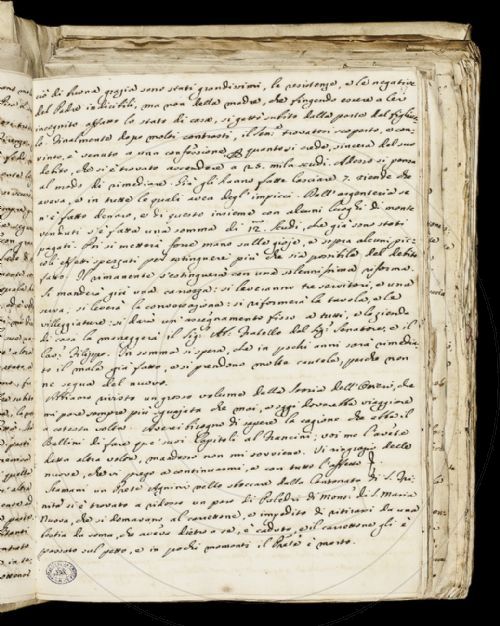 di buona grazia sono stati grandissimi, le resistenze, e le negative
del Padre indicibili, ma non della madre, che fingendo essere a lei
incognito affatto lo stato di cose, si gettò subito dalla parte del figliuo
lo. Finalmente dopo molti contrasti, il trovatosi scoperto, e con-
vinto, è venuto a una confessione, quantosi crede, sincera del suo
debito, che si è trovato ascendere a 28. mila scudi. Adesso si pensa
al modo di rimediare. Già gli hanno fatte lasciare 7. aziende che
aveva, e in tutte le quali avea degl'impicci. Dell'argenteria se
n'è fatto denaro, e di questo insieme con alcuni luoghi di monte
venduti s'è fatta una somma di scudi, che già sono stati
pagati. Poi si metterà forse mano sulle gioje, e sopra alcuni pic-
coli effetti spezzati per estinguere più che sia possibile del debito
fatto. Il rimanente s'estinguerà con una solennissima riforma.
Si manderà giù una carrozza: si leveranno tre servitori, e una
serva: si leverà la conversazione: si riformerà la tavola, e la
villeggiatura: si darà un'assegnamento fisso a tutti, e l'azienda
di casa la maneggerà il Sig. Ab. Fratello del Sig. Senatore, e il
Cav. Filippo. In somma si spera, che in pochi anni sarà rimedia-
to il male già fatto, e si prendono molte cautele, perchè non
ne segua del nuovo.
Abbiamo rivisto un grosso volume della Storia dell'
mi pare sempre più sguajata che mai, e oggi dovrebbe viaggiare
a cotesta volta. Averei bisogno di sapere la cagione che ebbe il
Bellini di fare que' suoi Capitoli al voi me l'avete
detta altra volta, ma adesso non mi sovviene. Vi ringrazio delle
nuove, che vi prego a continuarmi, e con tutto l'affetto
Stamani un Prete nello sboccare dalla Cantonata di S. Tri-
nita si è trovato a ridosso un paro di Poledri di Mons. di S. Maria
Nuova, che si domavano al carrettone, e impedito di ritirarsi da una
bestia da soma, che aveva dietro a se, è caduto, e il carrettone gli è
passato sul petto, e in pochi momenti il Prete è morto.